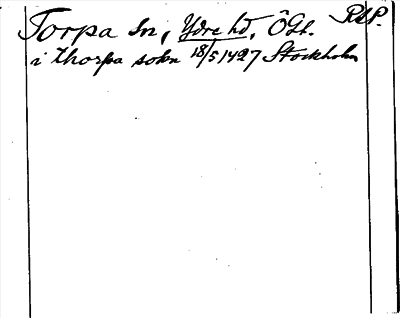 Torpa sn, Ydre hd, ÖGt. RAP.
i thorpa sokn 18/5 1427 Stockholm